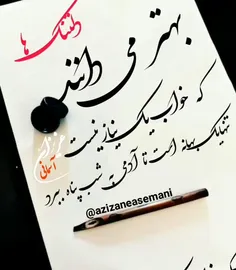 دلتنگ ها
بهتر می دانند
که خواب یک نیاز نیست
تنها یک بهانه است تا آدمی به شب پناه ببرد
عزیزان
آسمانی
@azizaneasemani